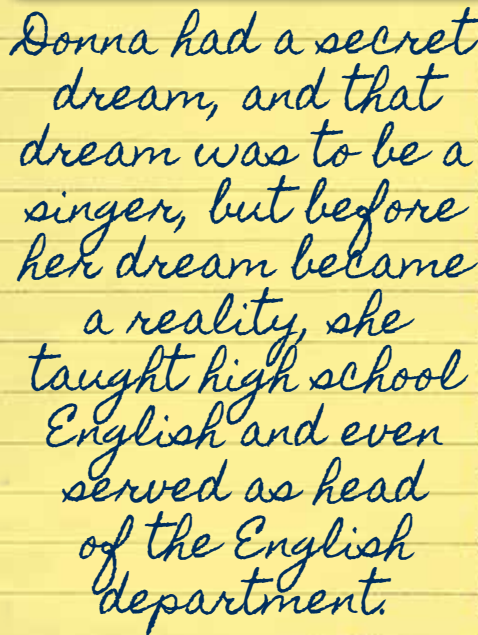 Donna had a secret
dream, and that
dream was to be a
singer, but before
her dream became
a reality, she
taught high school
English and even
served as head
of the English
department.